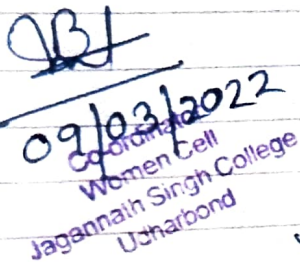 09/03/2022
Coordinator
Women Cell
Jagannath Singh College
Udharbond